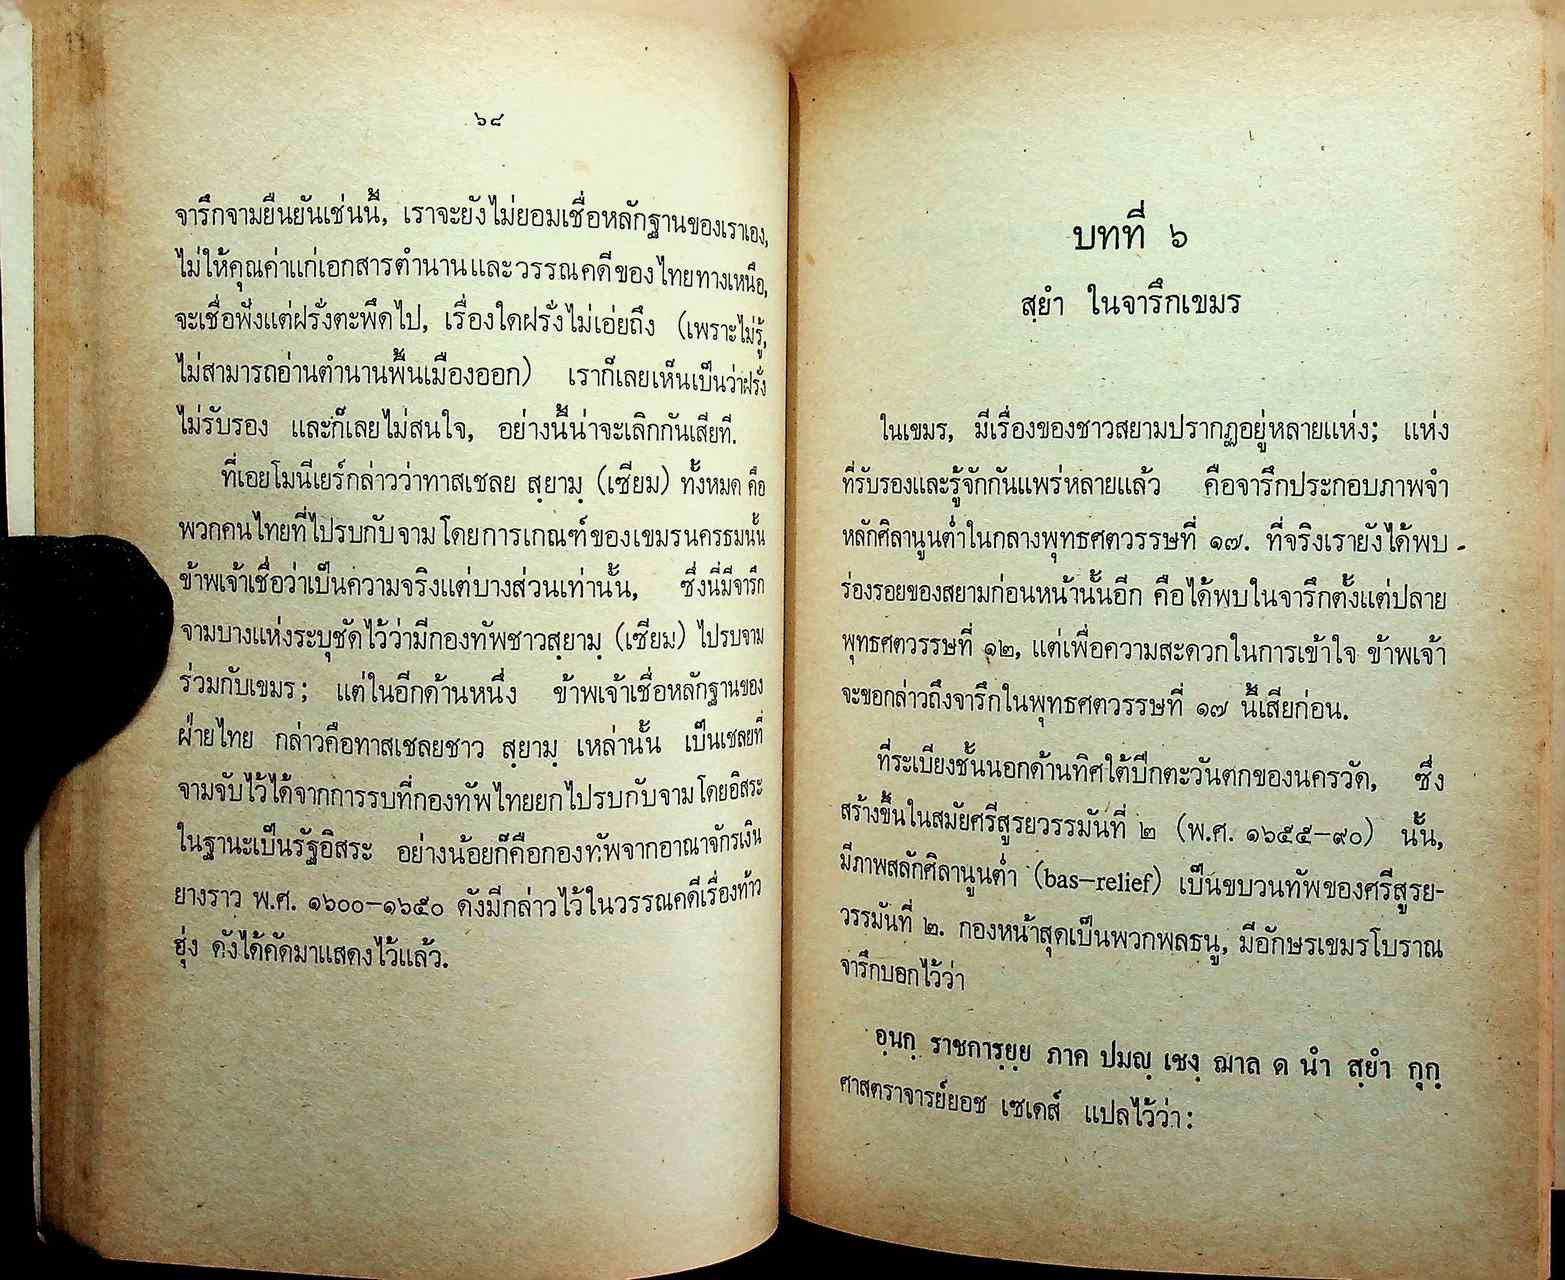 ๖๘
จารึกจามยืนยันเช่นนี้, เราจะยังไม่ยอมเชื่อหลักฐานของเราเอง,
ไม่ให้คุณค่าแก่เอกสารตำนานและวรรณคดีของไทยทางเหนือ,
จะเชื่อฟังแต่ฝรั่งตะพึดไป, เรื่องใดฝรั่งไม่เอ่ยถึง (เพราะไม่รู้,
ไม่สามารถอ่านตำนานพื้นเมืองออก) เราก็เลยเห็นเป็นว่าฝรั่ง
ไม่รับรอง และก็เลยไม่สนใจ, อย่างนี้น่าจะเลิกกันเสียที.
ที่เอยโมนีเยร์กล่าวว่าทาสเชลย สฺยามฺ (เซียม) ทั้งหมด คือ
พวกคนไทยที่ไปรบกับจามโดยการเกณฑ์ของเขมรนครธมนั้น
ข้าพเจ้าเชื่อว่าเป็นความจริงแต่บางส่วนเท่านั้น, ซึ่งนี่มีจารึก
จามบางแห่งระบุชัดไว้ว่ามีกองทัพชาวสฺยามฺ (เซียม) ไปรบจาม
ร่วมกับเขมร; แต่ในอีกด้านหนึ่ง ข้าพเจ้าเชื่อหลักฐานของ
ฝ่ายไทย กล่าวคือทาสเชลยชาว สฺยามฺ เหล่านั้น เป็นเชลยที่
จามจับไว้ได้จากการรบที่กองทัพไทยยกไปรบกับจามโดยอิสระ
ในฐานะเป็นรัฐอิสระ อย่างน้อยก็คือกองทัพจากอาณาจักรเงิน
ยางราว พ.ศ. ๑๖๐๐–๑๖๕๐ ดังมีกล่าวไว้ในวรรณคดีเรื่องท้าว
ฮุ่ง ดังได้คัดมาแสดงไว้แล้ว.
บทที่ ๖
สฺยำ ในจารึกเขมร
ในเขมร, มีเรื่องของชาวสยามปรากฏอยู่หลายแห่ง; แห่ง
ที่รับรองและรู้จักกันแพร่หลายแล้ว คือจารึกประกอบภาพจำ
หลักศิลานูนต่ำในกลางพุทธศตวรรษที่ ๑๗. ที่จริงเรายังได้พบ
ร่องรอยของสยามก่อนหน้านั้นอีก คือได้พบในจารึกตั้งแต่ปลาย
พุทธศตวรรษที่ ๑๒, แต่เพื่อความสะดวกในการเข้าใจ ข้าพเจ้า
จะขอกล่าวถึงจารึกในพุทธศตวรรษที่ ๑๗ นี้เสียก่อน.
ที่ระเบียงชั้นนอกด้านทิศใต้ปีกตะวันตกของนครวัด, ซึ่ง
สร้างขึ้นในสมัยศรีสูรยวรรมันที่ ๒ (พ.ศ. ๑๖๕๕–๙๐) นั้น,
มีภาพสลักศิลานูนต่ำ (bas–relief) เป็นขบวนทัพของศรีสูรย-
วรรมันที่ ๒. กองหน้าสุดเป็นพวกพลธนู, มีอักษรเขมรโบราณ
จารึกบอกไว้ว่า
อฺนกฺ ราชการฺยฺย ภาค ปมญฺ เชงฺ ฌาล ด นำ สฺยำ กุกฺ
ศาสตราจารย์ยอช เซเดส์ แปลไว้ว่า: